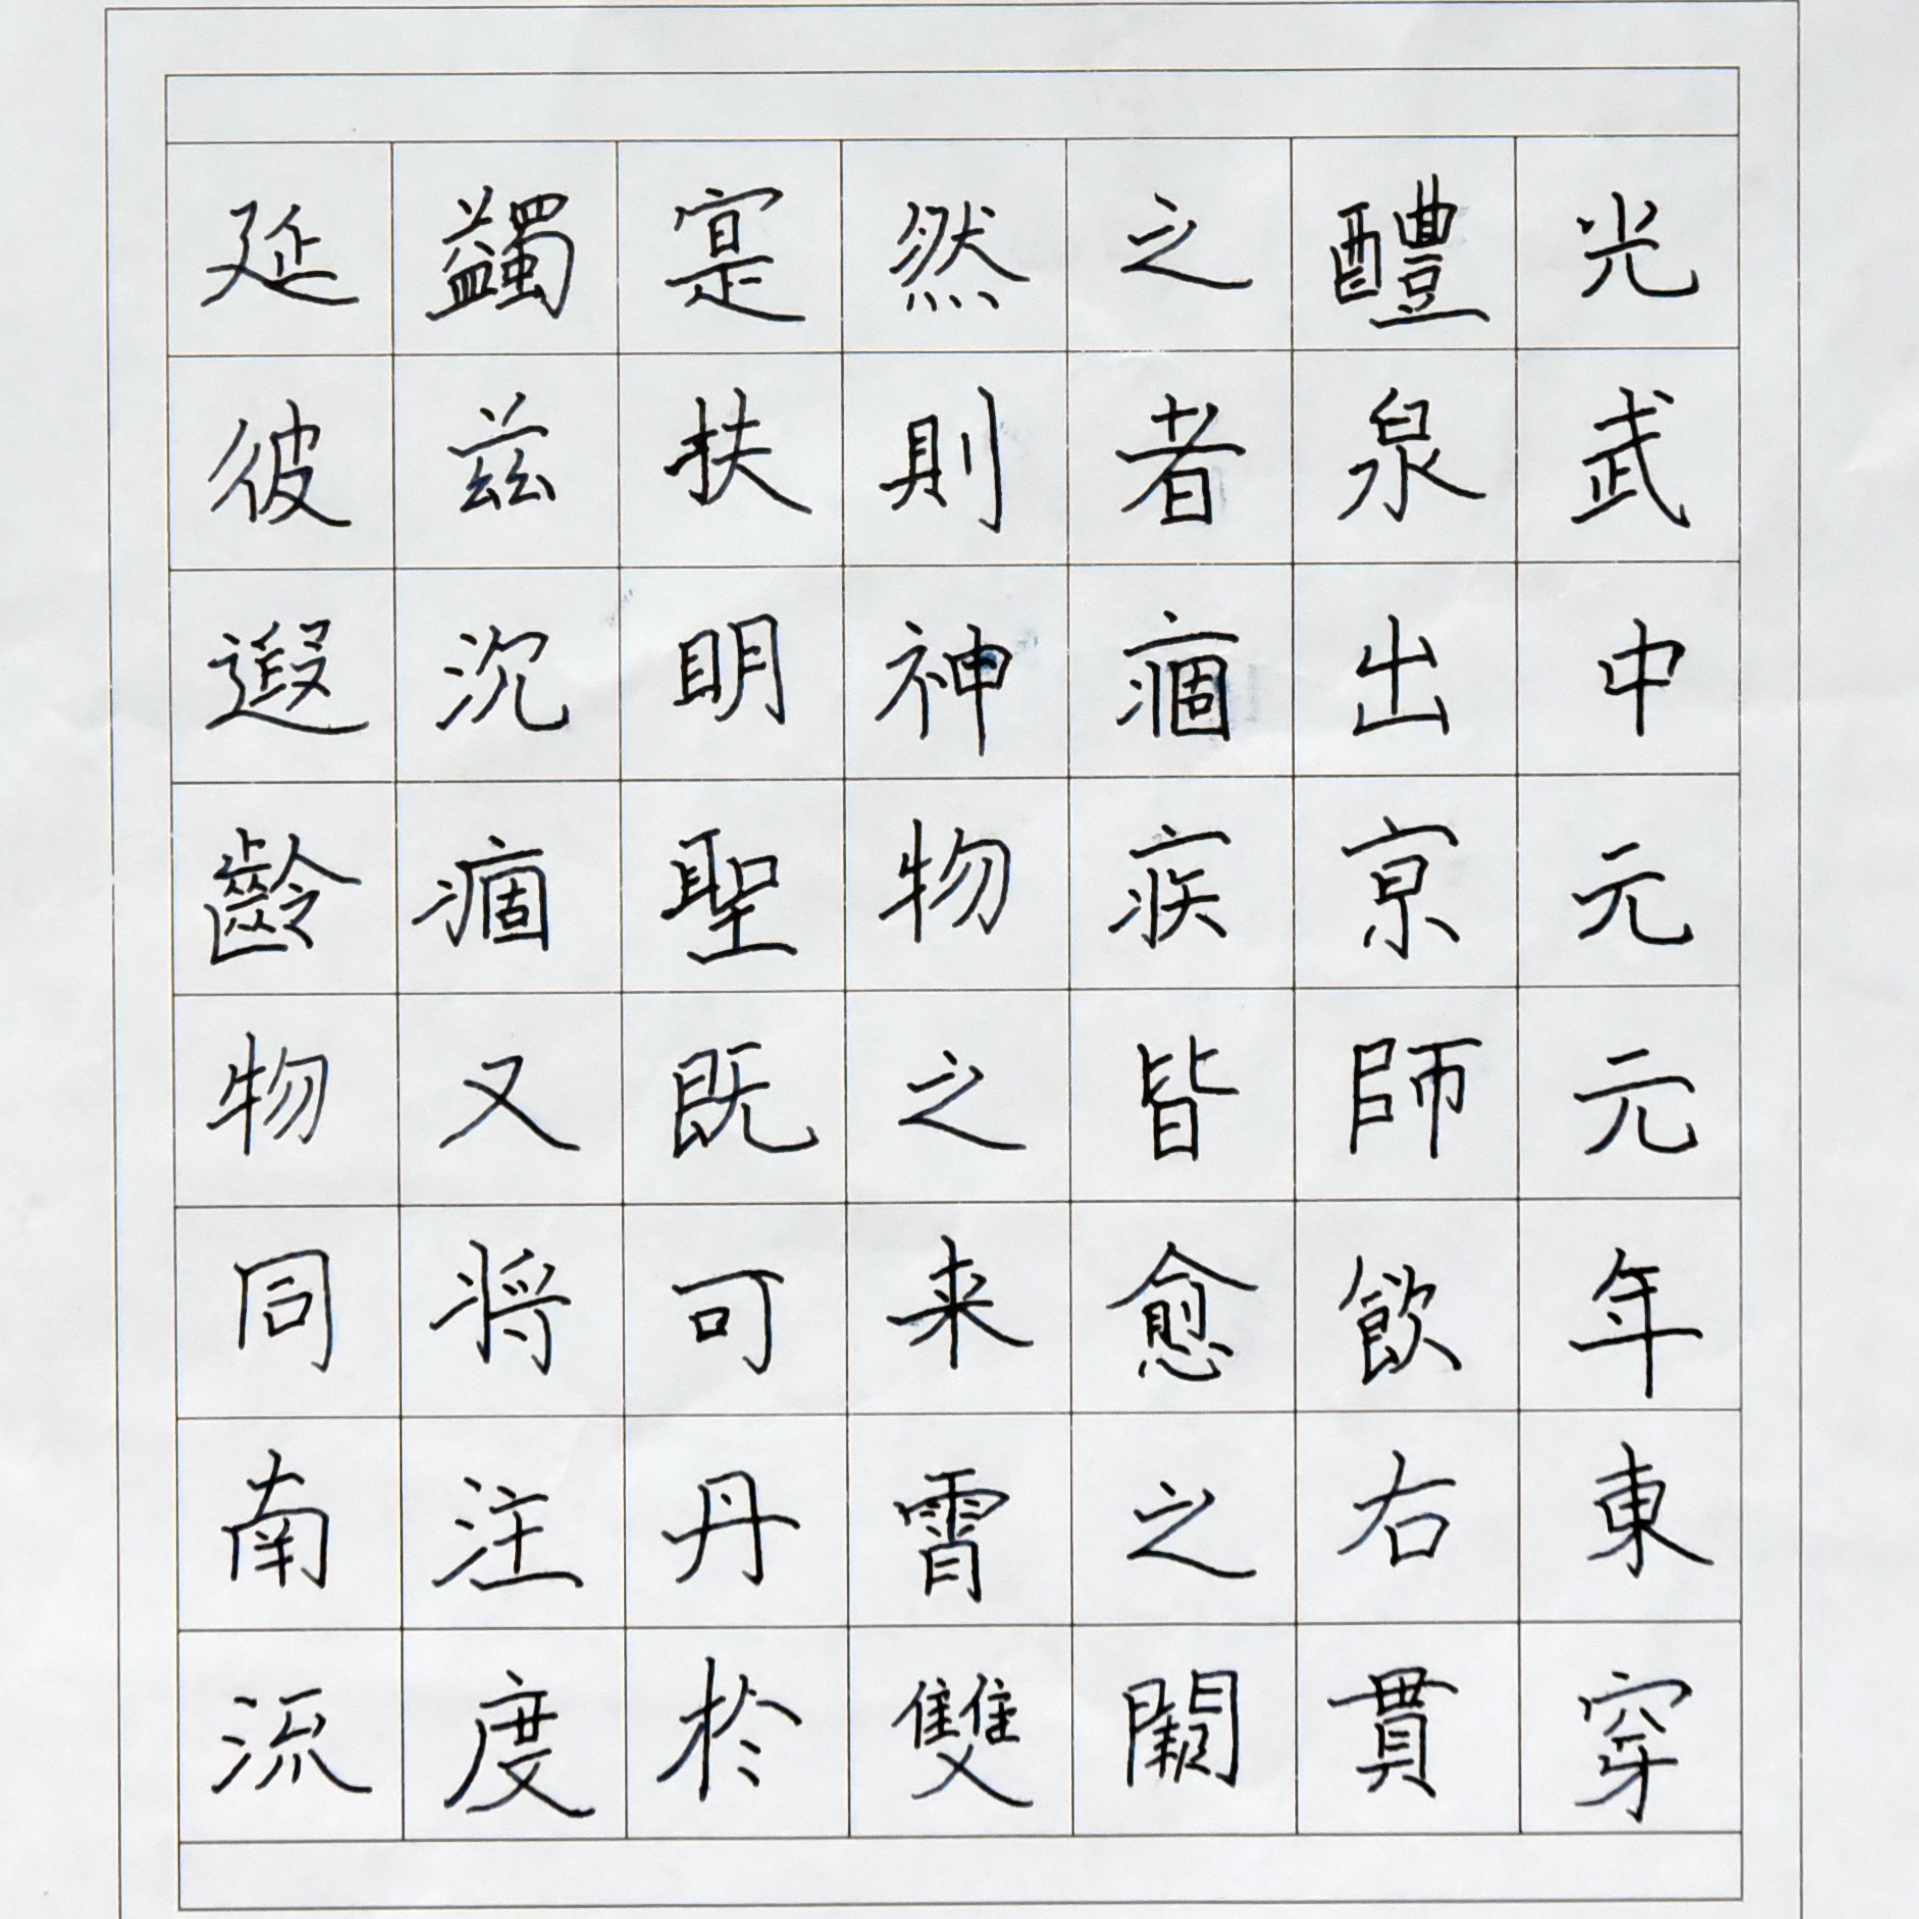 光武中元元年東穿
醴泉出亰師飲右貫
之者痼疾皆愈之闕
然則神物之来霄雙
寔扶眀聖既可丹於
蠲兹沉痼又将注度
延彼遐齡物同南流